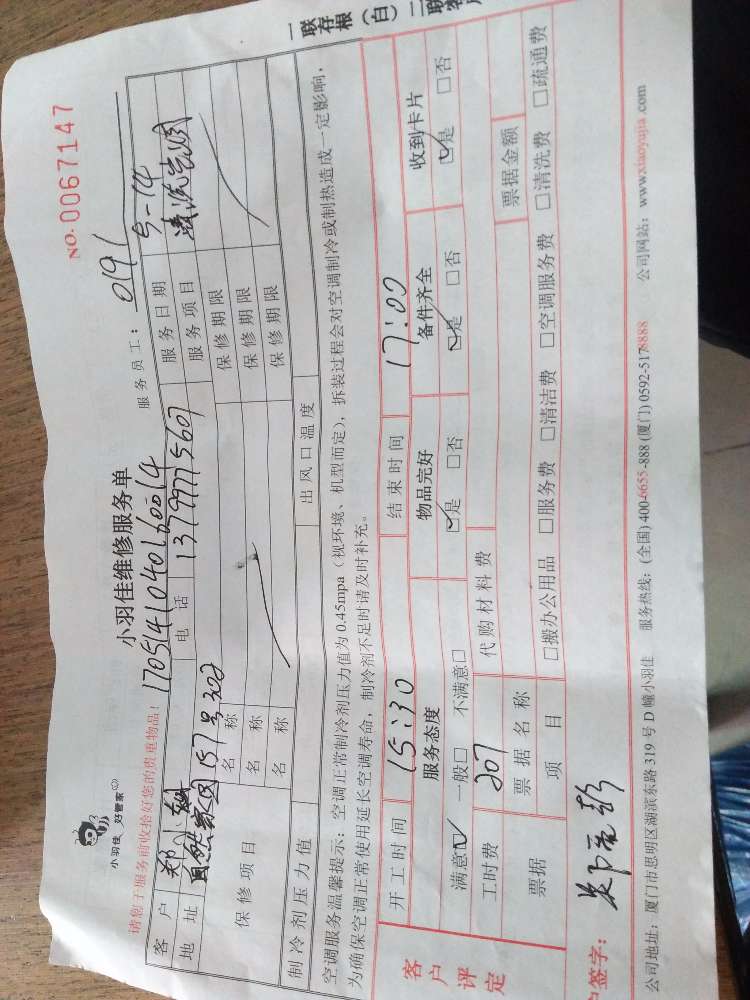 小羽佳 好管家
NO. 0067147
小羽佳维修服务单
请您于服务前收拾好您的贵重物品!
1705141040160014
服务员工: 0191
客户 郑
电话 13799771560
服务日期 5-14
地址 157号302
服务项目
保修项目
名称
保修期限
名称
保修期限
名称
保修期限
制冷剂压力值
出风口温度
空调服务温馨提示:空调正常制冷剂压力值为0.45mpa(视环境、机型而定),拆装过程会对空调制冷或制热造成一定影响,
为确保空调正常使用延长空调寿命,制冷剂不足时请及时补充。
客户评定
开工时间 15:30
结束时间 17:00
服务态度
物品完好
备件齐全
收到卡片
满意☑ 一般□ 不满意□
☑是 □否
☑是 □否
☑是 □否
工时费 207
代购材料费
票据
票据名称
票据金额
项目
□搬办公用品 □服务费 □清洁费 □空调服务费 □清洗费 □疏通费
签字:
公司地址:厦门市思明区湖滨东路319号D幢小羽佳 服务热线:(全国)400-6655-888 (厦门)0592-5178888 公司网站:www.xiaoyujia.com
一联存根(白)二联客户